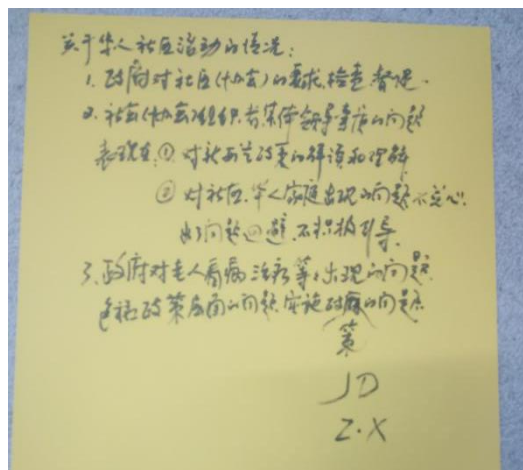 关于华人社区活动的情况：
1. 政府对社区（协会）的要求、检查、督促.
2. 社会（协会）组织者具体领导角度的问题
表现在：① 对新西兰政要的解读和理解
② 对社区、华人家庭出现的问题不关心.
出了问题回避、不积极引导.
3. 政府对老人看病治疗等，出现的问题.
各种政策层面的问题.实施政府的问题
策
JD
Z.X